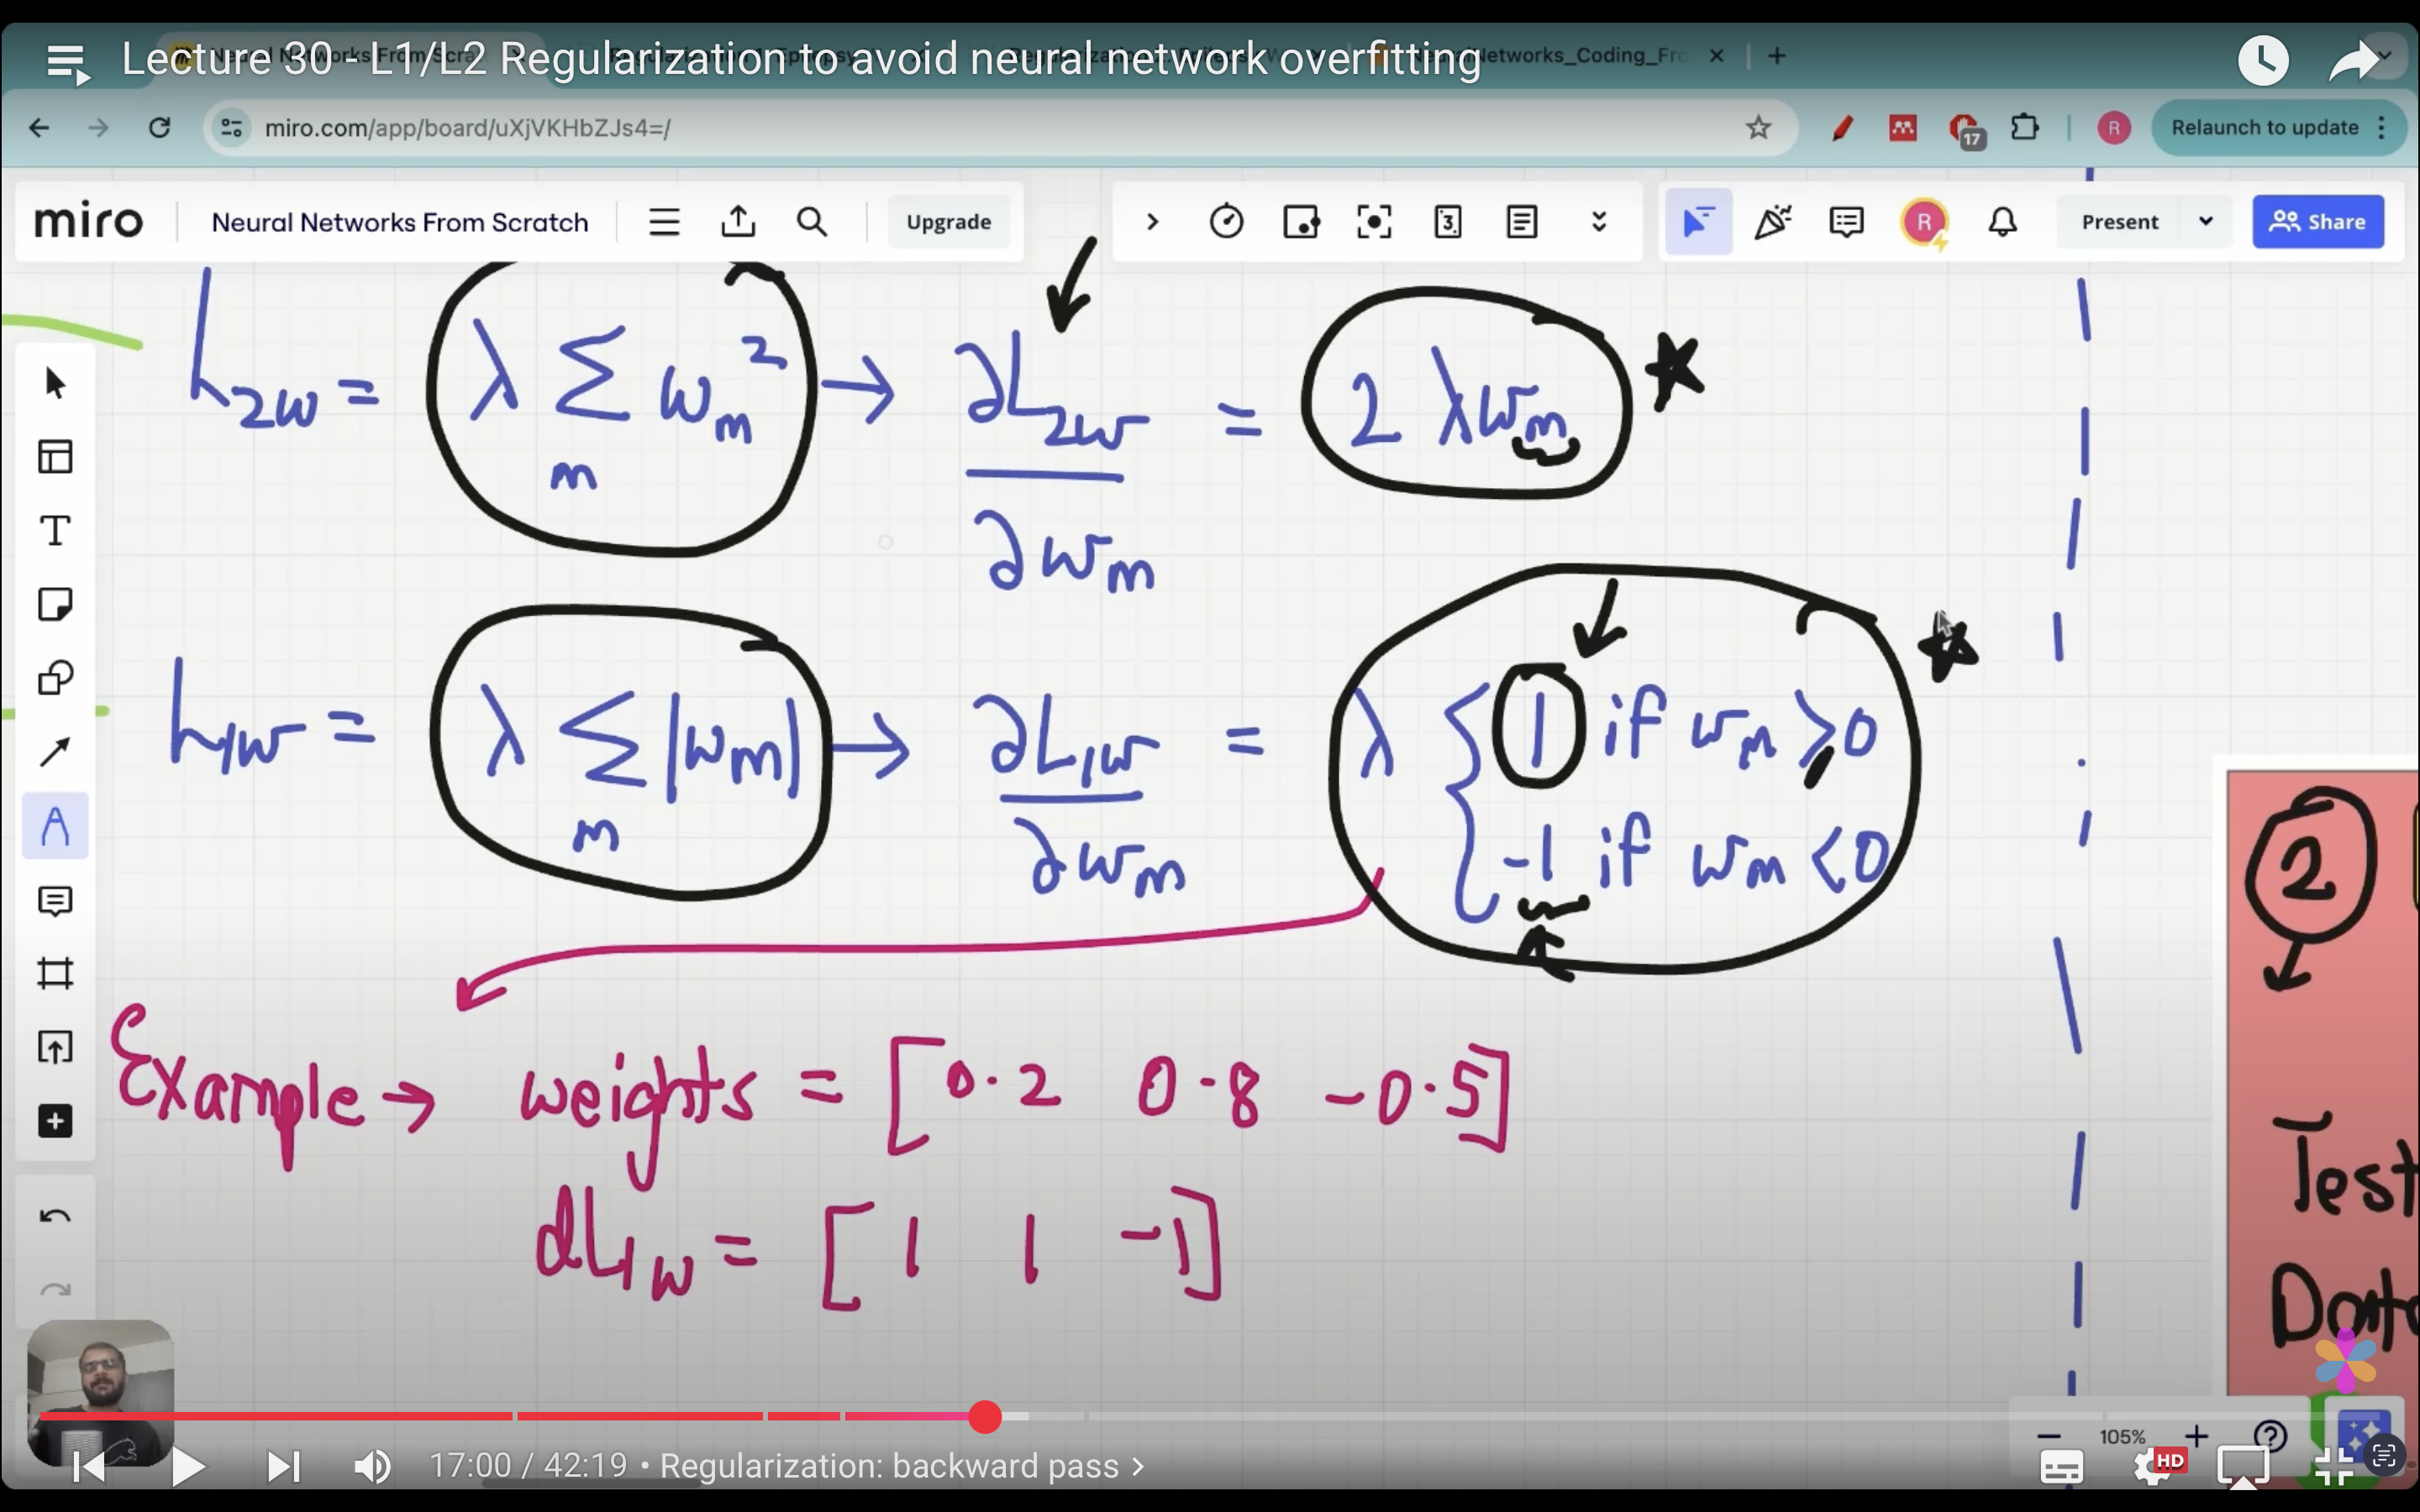 Lecture 30 - L1/L2 Regularization to avoid neural network overfitting
miro.com/app/board/uXjVKHbZJs4=/
17
R
Relaunch to update
miro
Neural Networks From Scratch
Upgrade
3
R
Present
Share
L2w = λ Σm wm² → ∂L2w / ∂wm = 2 λwm
L1w = λ Σm |wm| → ∂L1w / ∂wm = λ { 1 if wm ⩾ 0
-1 if wm < 0
Example → weights = [0.2 0.8 -0.5]
dL1w = [1 1 -1]
2
Test
105%
17:00 / 42:19 • Regularization: backward pass >
HD